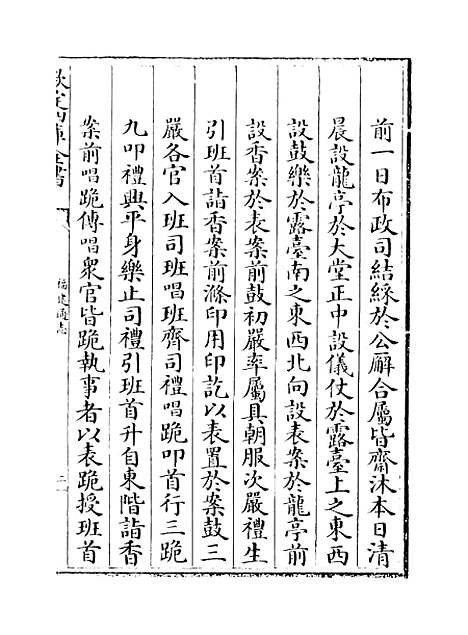 前一日布政司結綵於公廨合屬皆齋沐本日清
晨設龍亭於大堂正中設儀仗於露臺上之東西
設鼓樂於露臺南之東西北向設表案於龍亭前
設香案於表案前鼓初嚴率屬具朝服次嚴禮生
引班首詣香案前滌印用印訖以表置於案鼓三
嚴各官入班司班唱班齊司禮唱跪叩首行三跪
九叩禮興平身樂止司禮引班首升自東階詣香
案前唱跪傳唱衆官皆跪執事者以表跪授班首
欽定四庫全書
福建通志